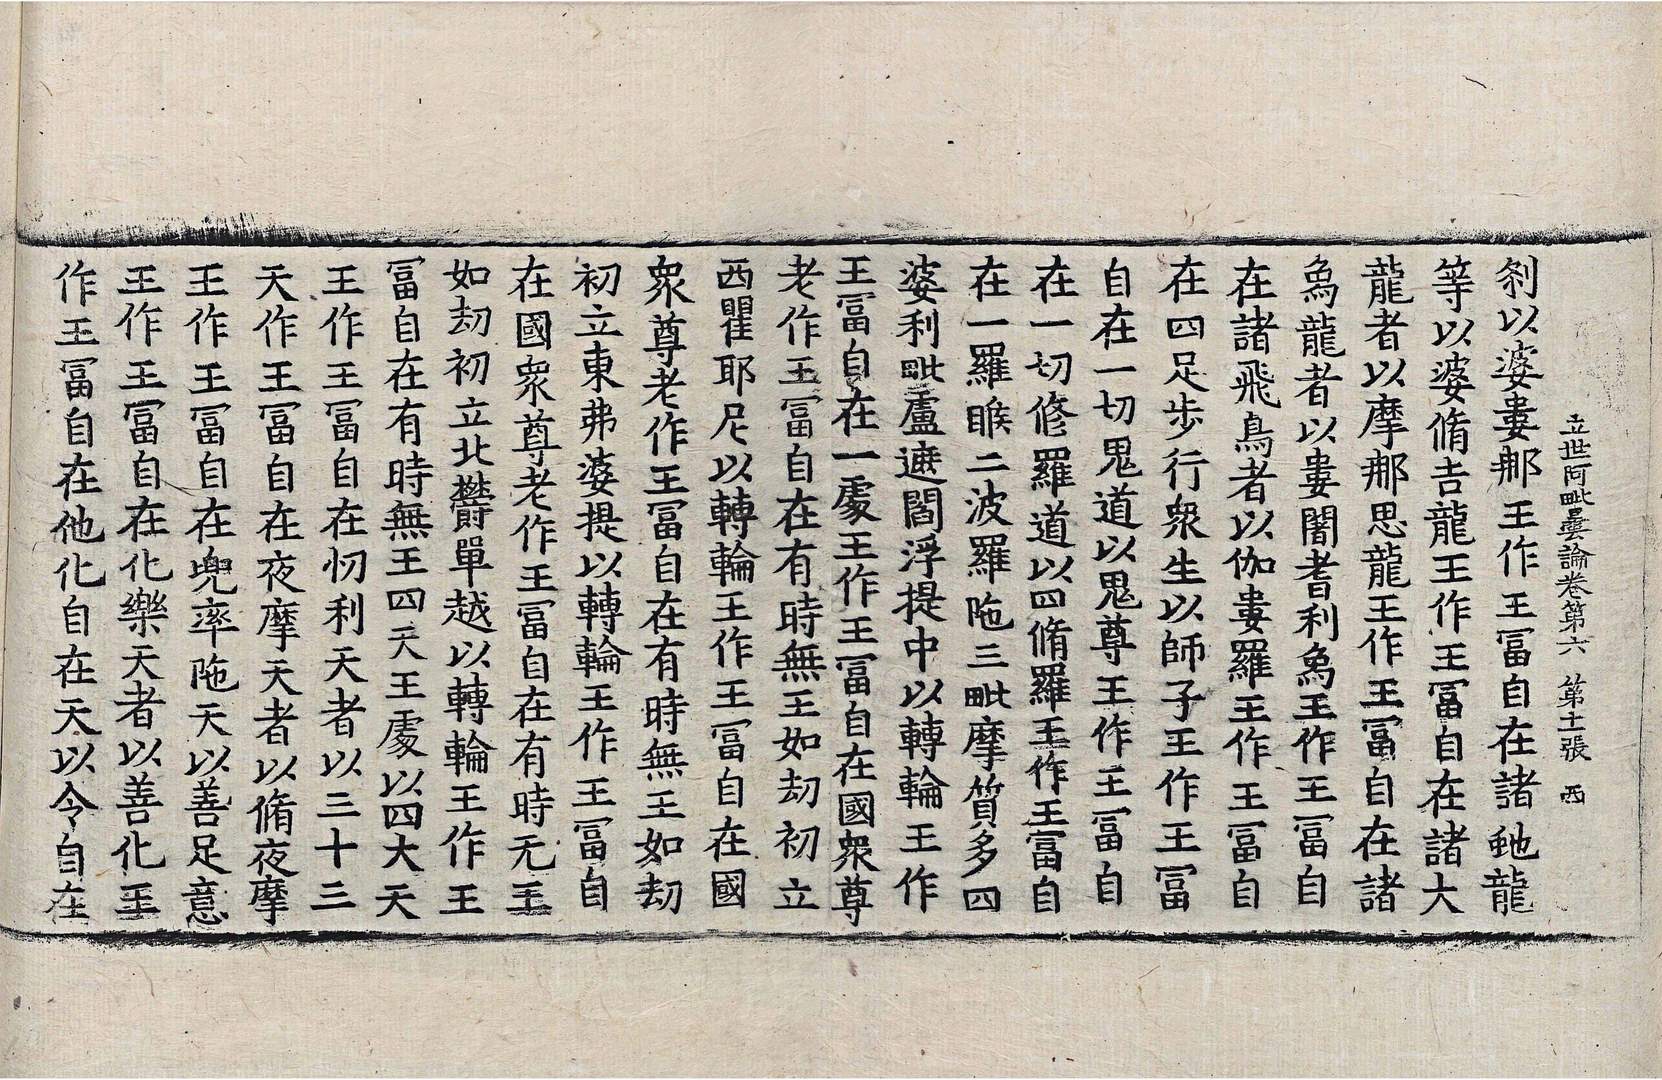 立世阿毗曇論卷第六 第十一張 西
刹以婆婁那王作王冨自在諸虵龍
等以婆脩吉龍王作王冨自在諸大
龍者以摩那思龍王作王冨自在諸
象龍者以婁闍耆利象王作王冨自
在諸飛鳥者以伽婁羅王作王冨自
在四足歩行衆生以師子王作王冨
自在一切鬼道以鬼尊王作王冨自
在一切修羅道以四脩羅王作王冨自
在一羅睺二波羅陁三毗摩質多四
婆利毗盧遮閻浮提中以轉輪王作
王冨自在一處王作王冨自在國衆尊
老作王冨自在有時無王如劫初立
西瞿耶尼以轉輪王作王冨自在國
衆尊老作王冨自在有時無王如劫
初立東弗婆提以轉輪王作王冨自
在國衆尊老作王冨自在有時无王
如劫初立北欝單越以轉輪王作王
冨自在有時無王四天王處以四大天
王作王冨自在忉利天者以三十三
天作王冨自在夜摩天者以脩夜摩
王作王冨自在兜率陁天以善足意
王作王冨自在化樂天者以善化王
作王冨自在他化自在天以令自在